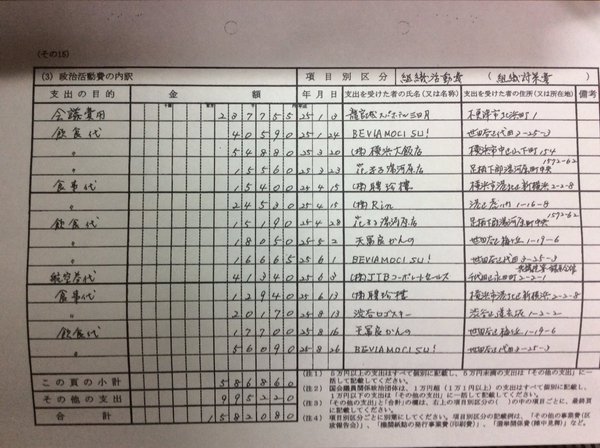 (その15)
(3) 政治活動費の内訳 項目別区分 組織活動費 (組織対策費)
支出の目的 金額 年月日 支出を受けた者の氏名(又は名称) 支出を受けた者の住所(又は所在地) 備考
会議費用 237755 25 1 3 龍宮城スパホテル三日月 木更津市北浜町1
飲食代 40590 25 1 24 BEVIAMOCI SU! 世田谷区代田3-25-3
〃 54880 25 3 20 (株)横浜大飯店 横浜市中区山下町154
〃 15560 25 3 23 湯河原店 足柄下郡湯河原町中央1572-62
食事代 15400 25 4 15 (株)聘珍樓 横浜市港北区新横浜2-2-8
〃 24530 25 4 15 (株)Rin 港区 1-16-8
飲食代 15190 25 4 28 湯河原店 足柄下郡湯河原町中央1572-62
〃 18050 25 5 2 天冨良かんの 世田谷区梅丘1-19-6
〃 16665 25 6 1 BEVIAMOCI SU! 世田谷区代田3-25-3
航空券代 41340 25 6 3 (株)JTBコーポレートセールス 千代田区永田町2-2-1
食事代 12940 25 6 13 (株)聘珍樓 横浜市港北区新横浜2-2-8
〃 20170 25 8 13 渋谷ロゴスキー 渋谷区道玄坂1-2-2
飲食代 17700 25 8 16 天冨良かんの 世田谷区梅丘1-19-6
〃 56090 25 8 26 BEVIAMOCI SU! 世田谷区代田3-25-3
この頁の小計 586860
その他の支出 995220
合計 1582080
(注1) 5万円以上の支出はすべて個別に記載し、5万円未満の支出は「その他の支出」に一括して記載してください。
(注2) 国会議員関係政治団体は、1万円超(1万1円以上)の支出はすべて個別に記載し、1万円以下の支出は「その他の支出」に一括して記載してください。
(注3) 「その他の支出」と「合計」の欄は、右上の項目別区分の( )の中の項目ごとに、最終頁に記載してください。
(注4) 項目別区分ごとに別葉にしてください。項目別区分の記載例は、「その他の事業費(区政報告会)」、「機関紙誌の発行事業費(印刷費)」、「選挙関係費(陣中見舞)」など。